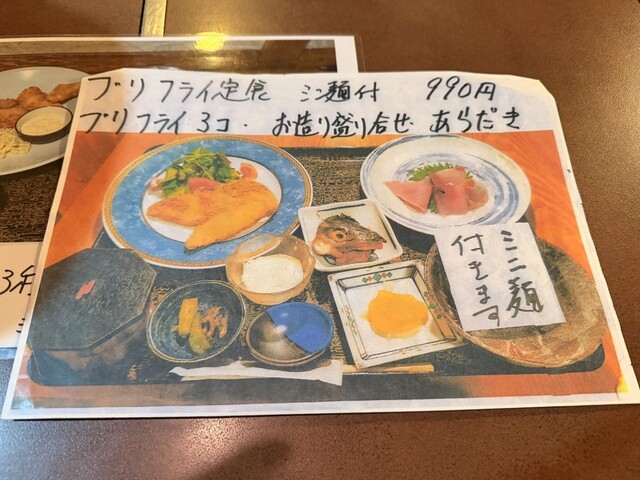 ブリフライ定食 ミニ麺付 990円
ブリフライ3コ・お造り盛り合せ あらだき
ミニ麺
付きます